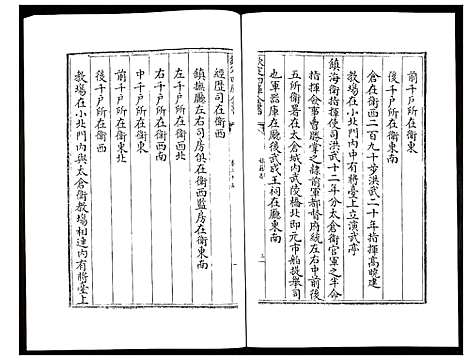 前千戶所在衛東
後千戶所在衛東南
倉在衛西二百九十步洪武二十年指揮高曉建
教場在小北門內中有將臺上立演武亭
鎮海衛指揮使司洪武十二年分太倉衛官軍之半命
指揮僉事曹勝掌之隸前軍都督府統左右中前後
五所衛署在太倉城內武陵橋北即元市舶提舉司
也軍器庫在廳後武成王祠在廳東南
經歷司在衛西
鎮撫廳左右司房俱在衛西監房在衛東南
左千戶所在衛西北
右千戶所在衛西南
中千戶所在衛東
前千戶所在衛東北
後千戶所在衛西
教場在小北門內與太倉衛教場相連內有將臺上